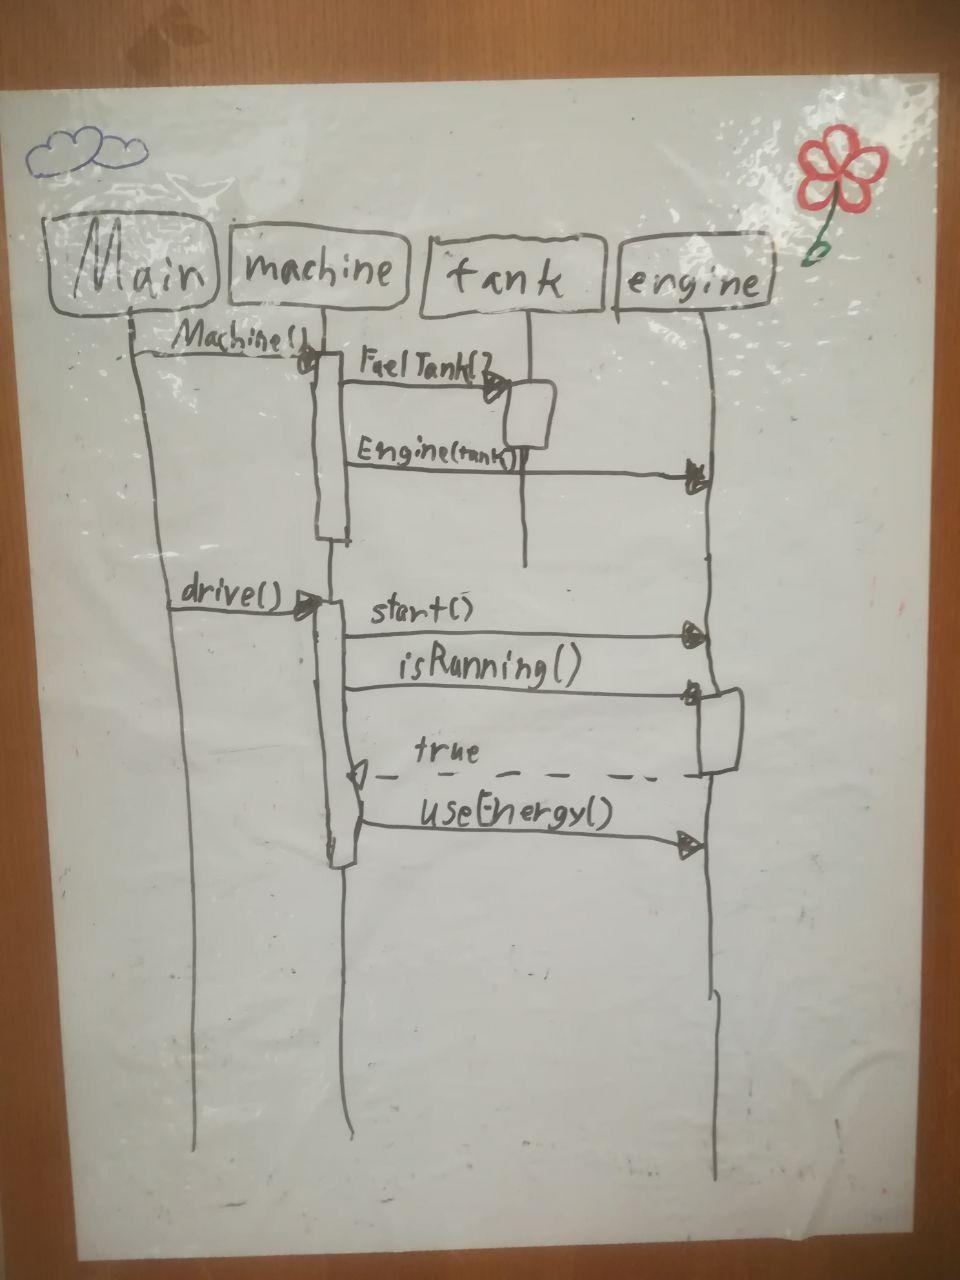 Main machine tank engine
Machine()
FuelTank()
Engine(tank)
drive()
start()
isRunning()
true
useEnergy()